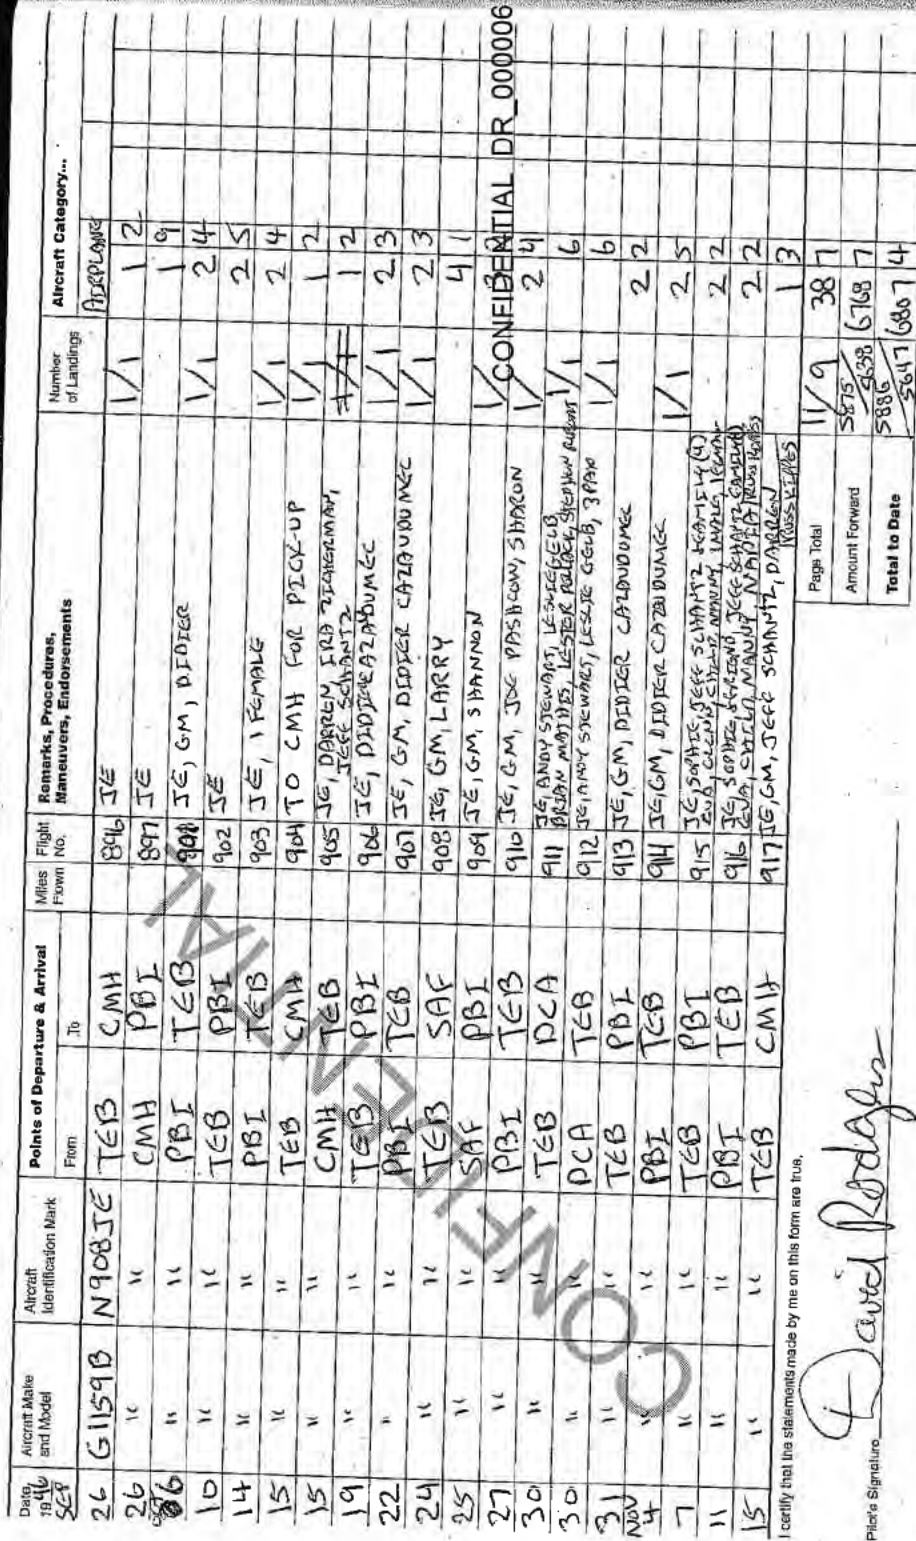 Date, 1996 Aircraft Make and Model Aircraft Identification Mark Points of Departure & Arrival From To Miles Flown Flight No. Remarks, Procedures, Maneuvers, Endorsements Number of Landings Aircraft Category...
SEP AIRPLANE
26 G1159B N908JE TEB CMH 896 JE 1/1 1 2
26 " " CMH PBI 897 JE 1 9
OCT 6 " " PBI TEB 901 JE, GM, DIDIER 1/1 2 4
10 " " TEB PBI 902 JE 2 5
14 " " PBI TEB 903 JE, 1 FEMALE 1/1 2 4
15 " " TEB CMH 904 TO CMH FOR PICK-UP 1/1 1 2
15 " " CMH TEB 905 JE, DARREN, IRA ZICHERMAN, JEFF SCHANTZ 1 2
19 " " TEB PBI 906 JE, DIDIER CAZAUDUMEC 1/1 2 3
22 " " PBI TEB 907 JE, GM, DIDIER CAZAUDUMEC 1/1 2 3
24 " " TEB SAF 908 JE, GM, LARRY 4 1
25 " " SAF PBI 909 JE, GM, SHANNON 1/
27 " " PBI TEB 910 JE, GM, JOE PASHCOW, SHARON 1/1 2 4
30 " " TEB DCA 911 JE, ANDY STEWART, LESLIE GELB 1/1 6
BRIAN MATHIS, LESTER POLLACK, STEPHEN
30 " " DCA TEB 912 JE, ANDY STEWART, LESLIE GELB, 3 PAX 1/1 6
31 " " TEB PBI 913 JE, GM, DIDIER CAZAUDUMEC 2 2
NOV 4 " " PBI TEB 914 JE, GM, DIDIER CAZAUDUMEC 1/1 2 5
7 " " TEB PBI 915 JE, SOPHIE, JEFF SCHANTZ FAMILY (4) 2 2
EVA, GLENN, CHILD, MANNY, 1 MALE, 1 FEMALE
11 " " PBI TEB 916 JE, SOPHIE, JEFF SCHANTZ 2 2
EVA, CHILD, MANNY, NADIA,
15 " " TEB CMH 917 JE, GM, JEFF SCHANTZ, DARREN 1 3
RUSS KIPPES
I certify that the statements made by me on this form are true.
Page Total 11/9 38 7
Amount Forward 5875/5638 6768 7
Total to Date 5886/5647 6807 4
Pilot's Signature David Rodgers
CONFIDENTIAL
CONFIDENTIAL DR_000006